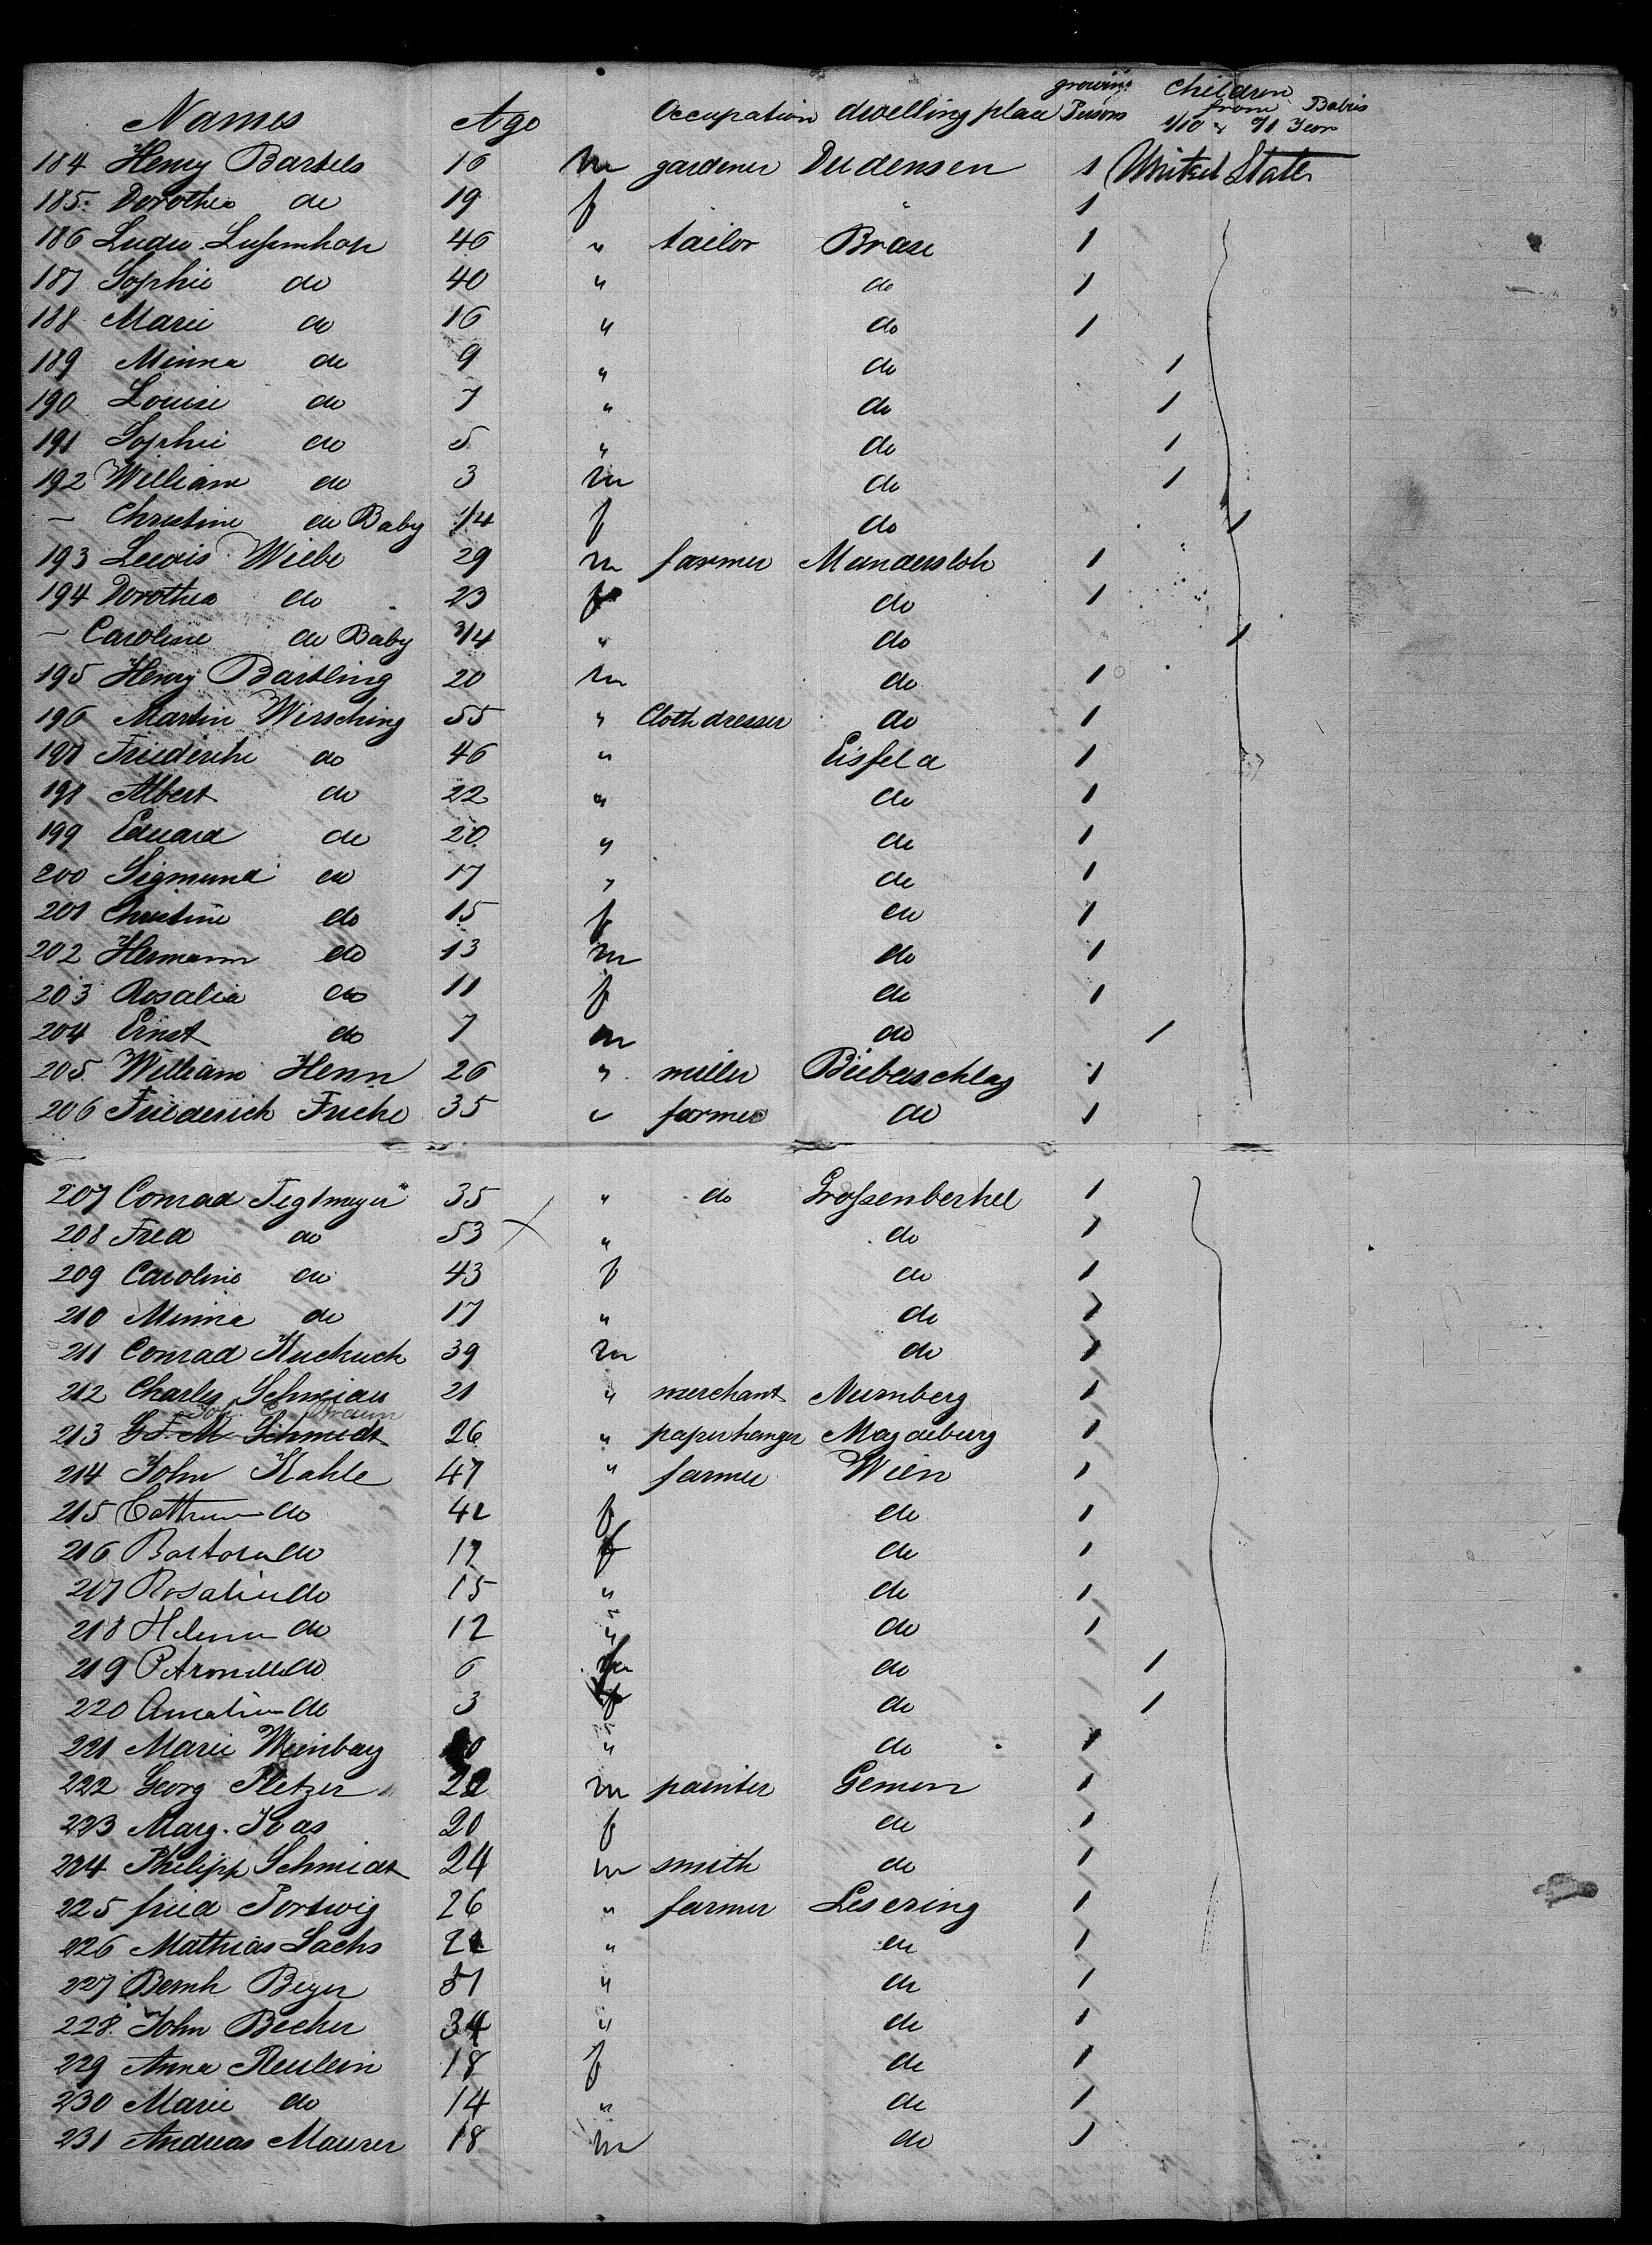 Names Age Occupation dwelling place growing Persons Children from 1/10 & Babies 0/1 Year
184 Henry Bartels 16 m gardener Dudensen 1 United States
185 Dorothea do 19 f " 1
186 Ludw. 46 " tailor Brase 1
187 Sophie do 40 " do 1
188 Marie do 16 " do 1
189 Minna do 9 " do 1
190 Louise do 7 " do 1
191 Sophie do 5 " do 1
192 William do 3 m do 1
— Christine do Baby 1/4 f do 1
193 Lewis Wiebe 29 m farmer Mandersloh 1
194 Dorothea do 23 f do 1
— Caroline do Baby 3/4 " do 1
195 Henry Bartling 20 m do 1
196 Martin Wirsching 55 " Cloth dresser do 1
197 Friederike do 46 " Eisfeld 1
198 Albert do 22 " do 1
199 Eduard do 20 " do 1
200 Sigmund do 17 " do 1
201 Christine do 15 f do 1
202 Hermann do 13 m do 1
203 Rosalia do 11 f do 1
204 Ernst do 7 m do 1
205 William Henn 26 " miller Biberschlag 1
206 Friederich Fricke 35 " farmer do 1
207 Conrad Tegtmeyer 35 " do Grossenberkel 1
208 Fred do 53 " do 1
209 Caroline do 43 f do 1
210 Minna do 17 " do 1
211 Conrad Kuckuck 39 m do 1
212 Charles 21 " merchant Nurnberg 1
Joh. C. Braun
213 G F. M Schmidt 26 " paperhanger Magdeburg 1
214 John Kahle 47 " farmer Wien 1
215 do 42 f do 1
216 do 17 f do 1
217 Rosalie do 15 " do 1
218 Helena do 12 " do 1
219 do 6 do 1
220 Amalie do 3 f do 1
221 Marie " do 1
222 Georg Pletzer 22 m painter 1
223 Marg. 20 f do 1
224 Philipp Schmidt 24 m smith do 1
225 fried 26 " farmer Lesering 1
226 Mathias Sachs " do 1
227 Bernh Beyer " do 1
228 John Becker 34 " do 1
229 Anna Reulein 18 f do 1
230 Marie do 14 " do 1
231 Andreas Maurer 18 m do 1